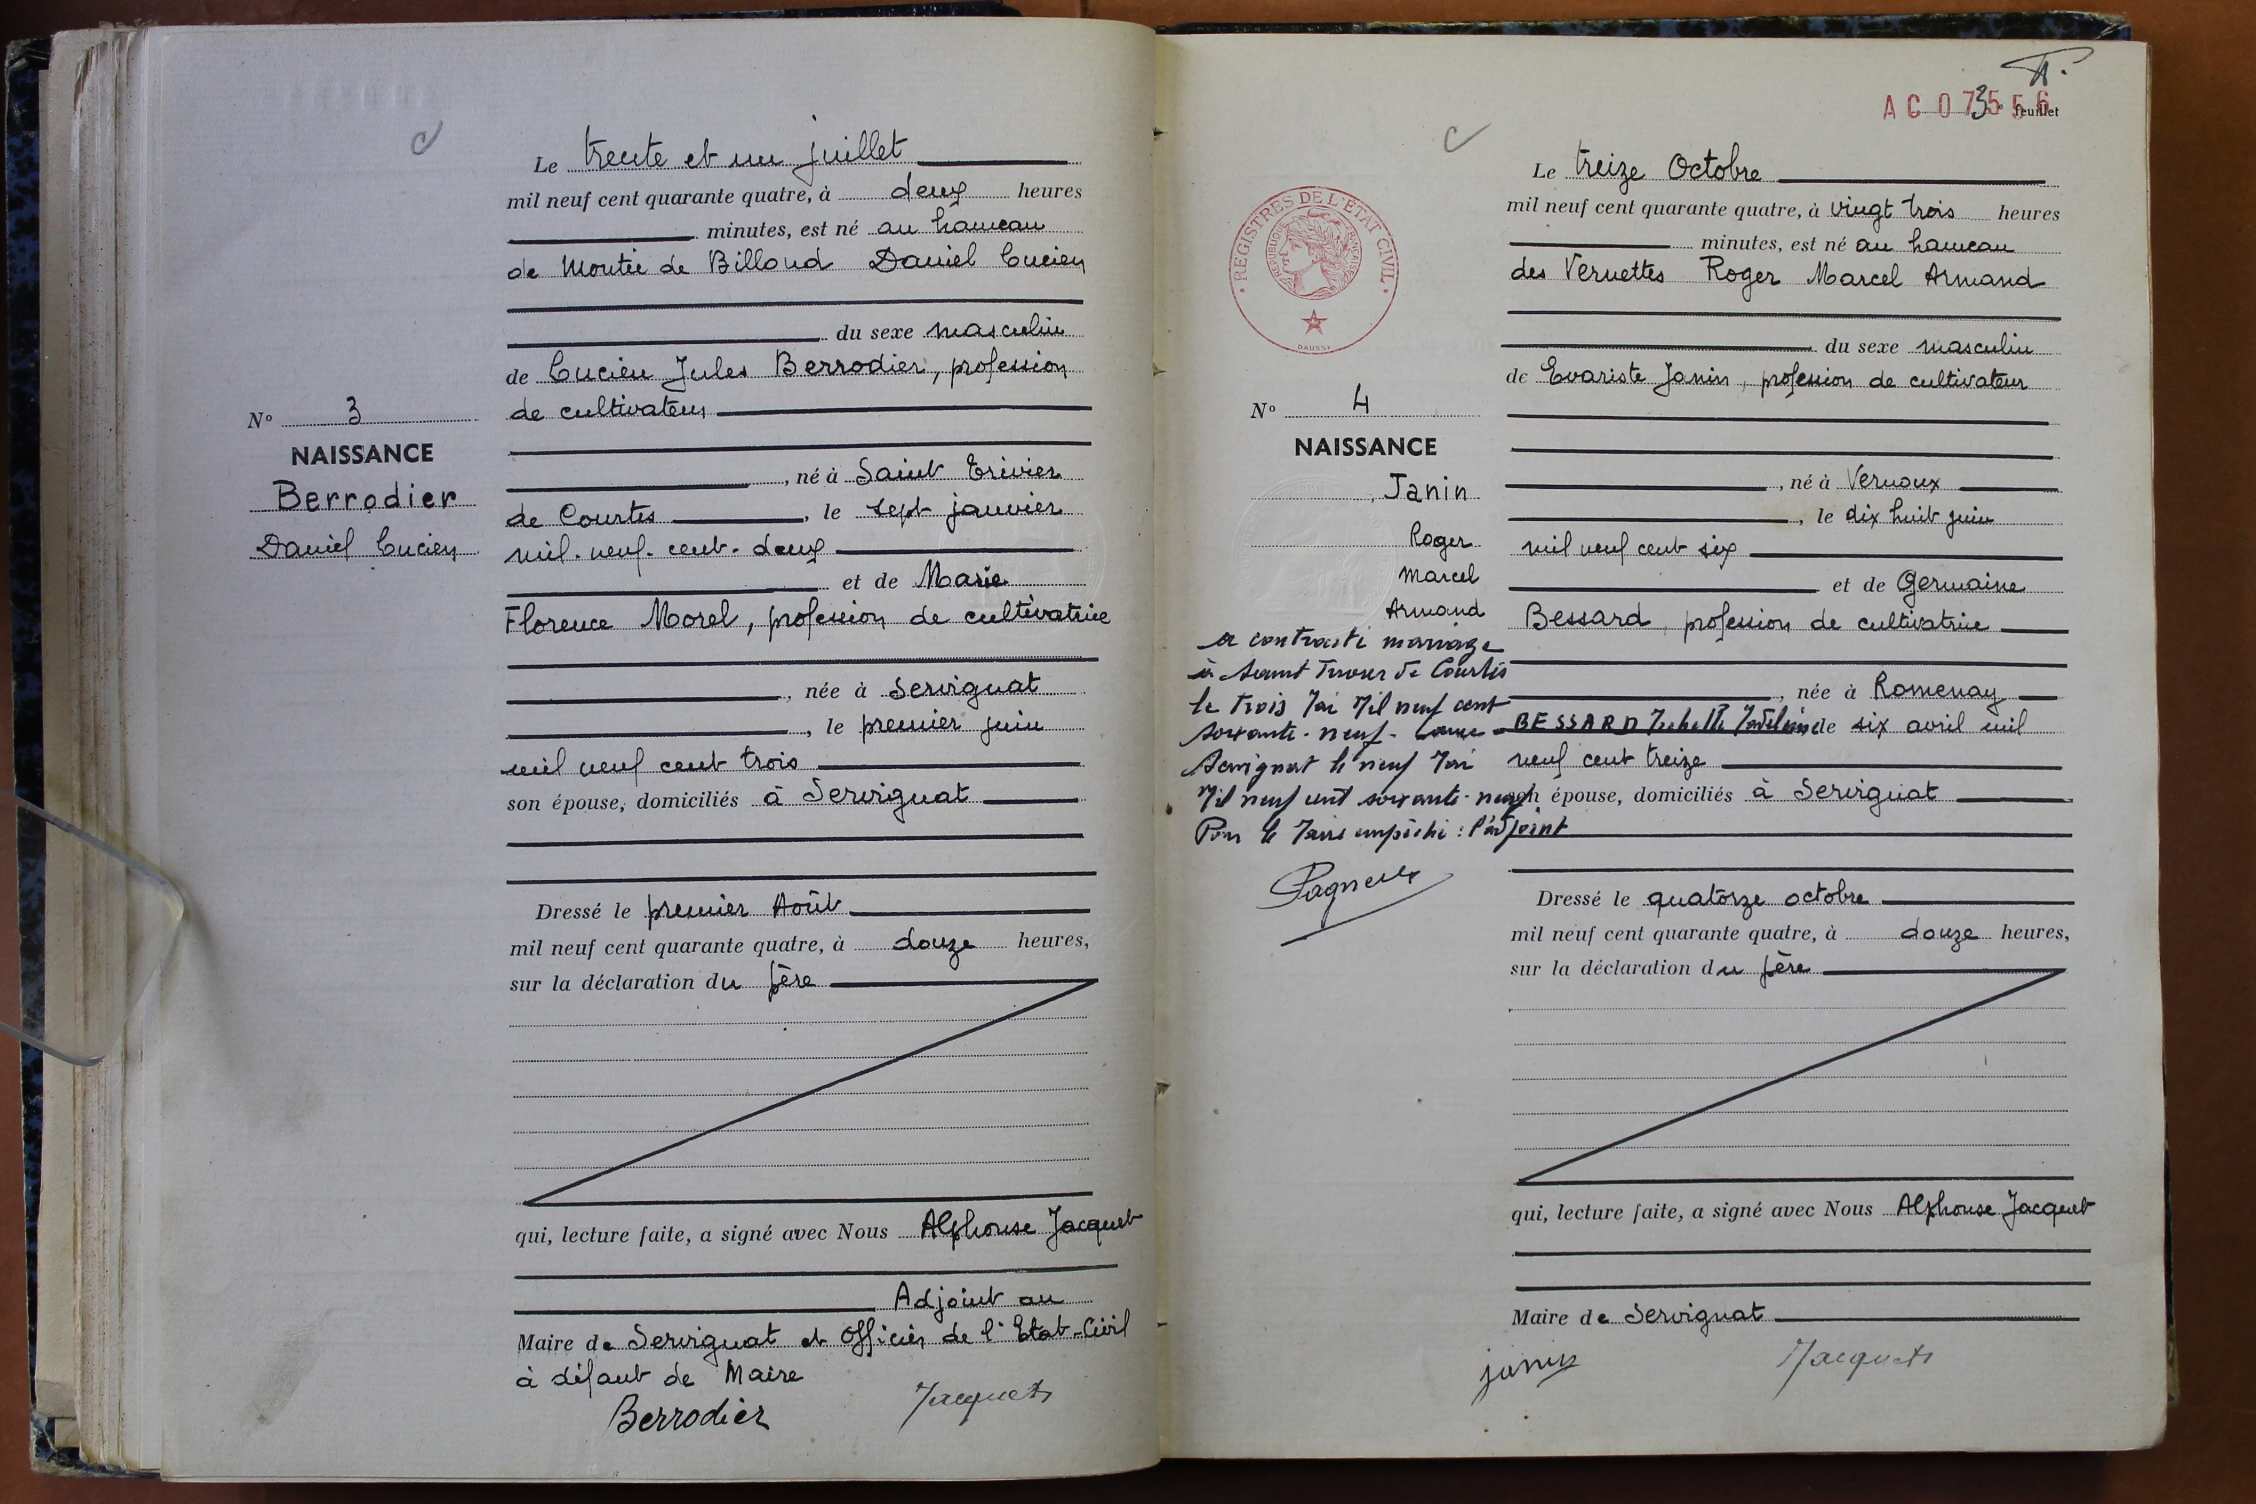 Le trente et un juillet
mil neuf cent quarante quatre, à deux heures
minutes, est né au hameau
de Montée de Billoud Daniel Lucien
du sexe masculin
de Lucien Jules Berrodier, profession
de cultivateur
N° 3
NAISSANCE
Berrodier
Daniel Lucien
, né à Saint Trivier
de Courtes, le sept janvier
mil-neuf-cent-deux
et de Marie
Florence Morel, profession de cultivatrice
, née à Servignat
, le premier juin
mil neuf cent trois
son épouse, domiciliés à Servignat
Dressé le premier Août
mil neuf cent quarante quatre, à douze heures,
sur la déclaration du père
qui, lecture faite, a signé avec Nous Alphonse Jacquet
Adjoint au
Maire de Servignat et Officier de l'Etat-Civil
à défaut de Maire
Berrodier
Jacquet
AC 07556
3e feuillet
Le treize Octobre
mil neuf cent quarante quatre, à vingt trois heures
minutes, est né au hameau
des Vernettes Roger Marcel Armand
du sexe masculin
de Evariste Janin, profession de cultivateur
REGISTRES DE L'ETAT CIVIL
REPUBLIQUE FRANÇAISE
N° 4
NAISSANCE
Janin
Roger
Marcel
Armand
a contracté mariage
à Saint Trivier de Courtes
le trois Mai Mil neuf cent
soixante-neuf avec BESSARD
Servignat le neuf Mai
Mil neuf cent soixante-neuf
Pour le Maire empêché : l'adjoint
Pagneux
, né à Vernoux
, le dix huit juin
mil neuf cent six
et de Germaine
Bessard, profession de cultivatrice
, née à Romenay
le six avril mil
neuf cent treize
son épouse, domiciliés à Servignat
Dressé le quatorze octobre
mil neuf cent quarante quatre, à douze heures,
sur la déclaration du père
qui, lecture faite, a signé avec Nous Alphonse Jacquet
Maire de Servignat
janin
Jacquet